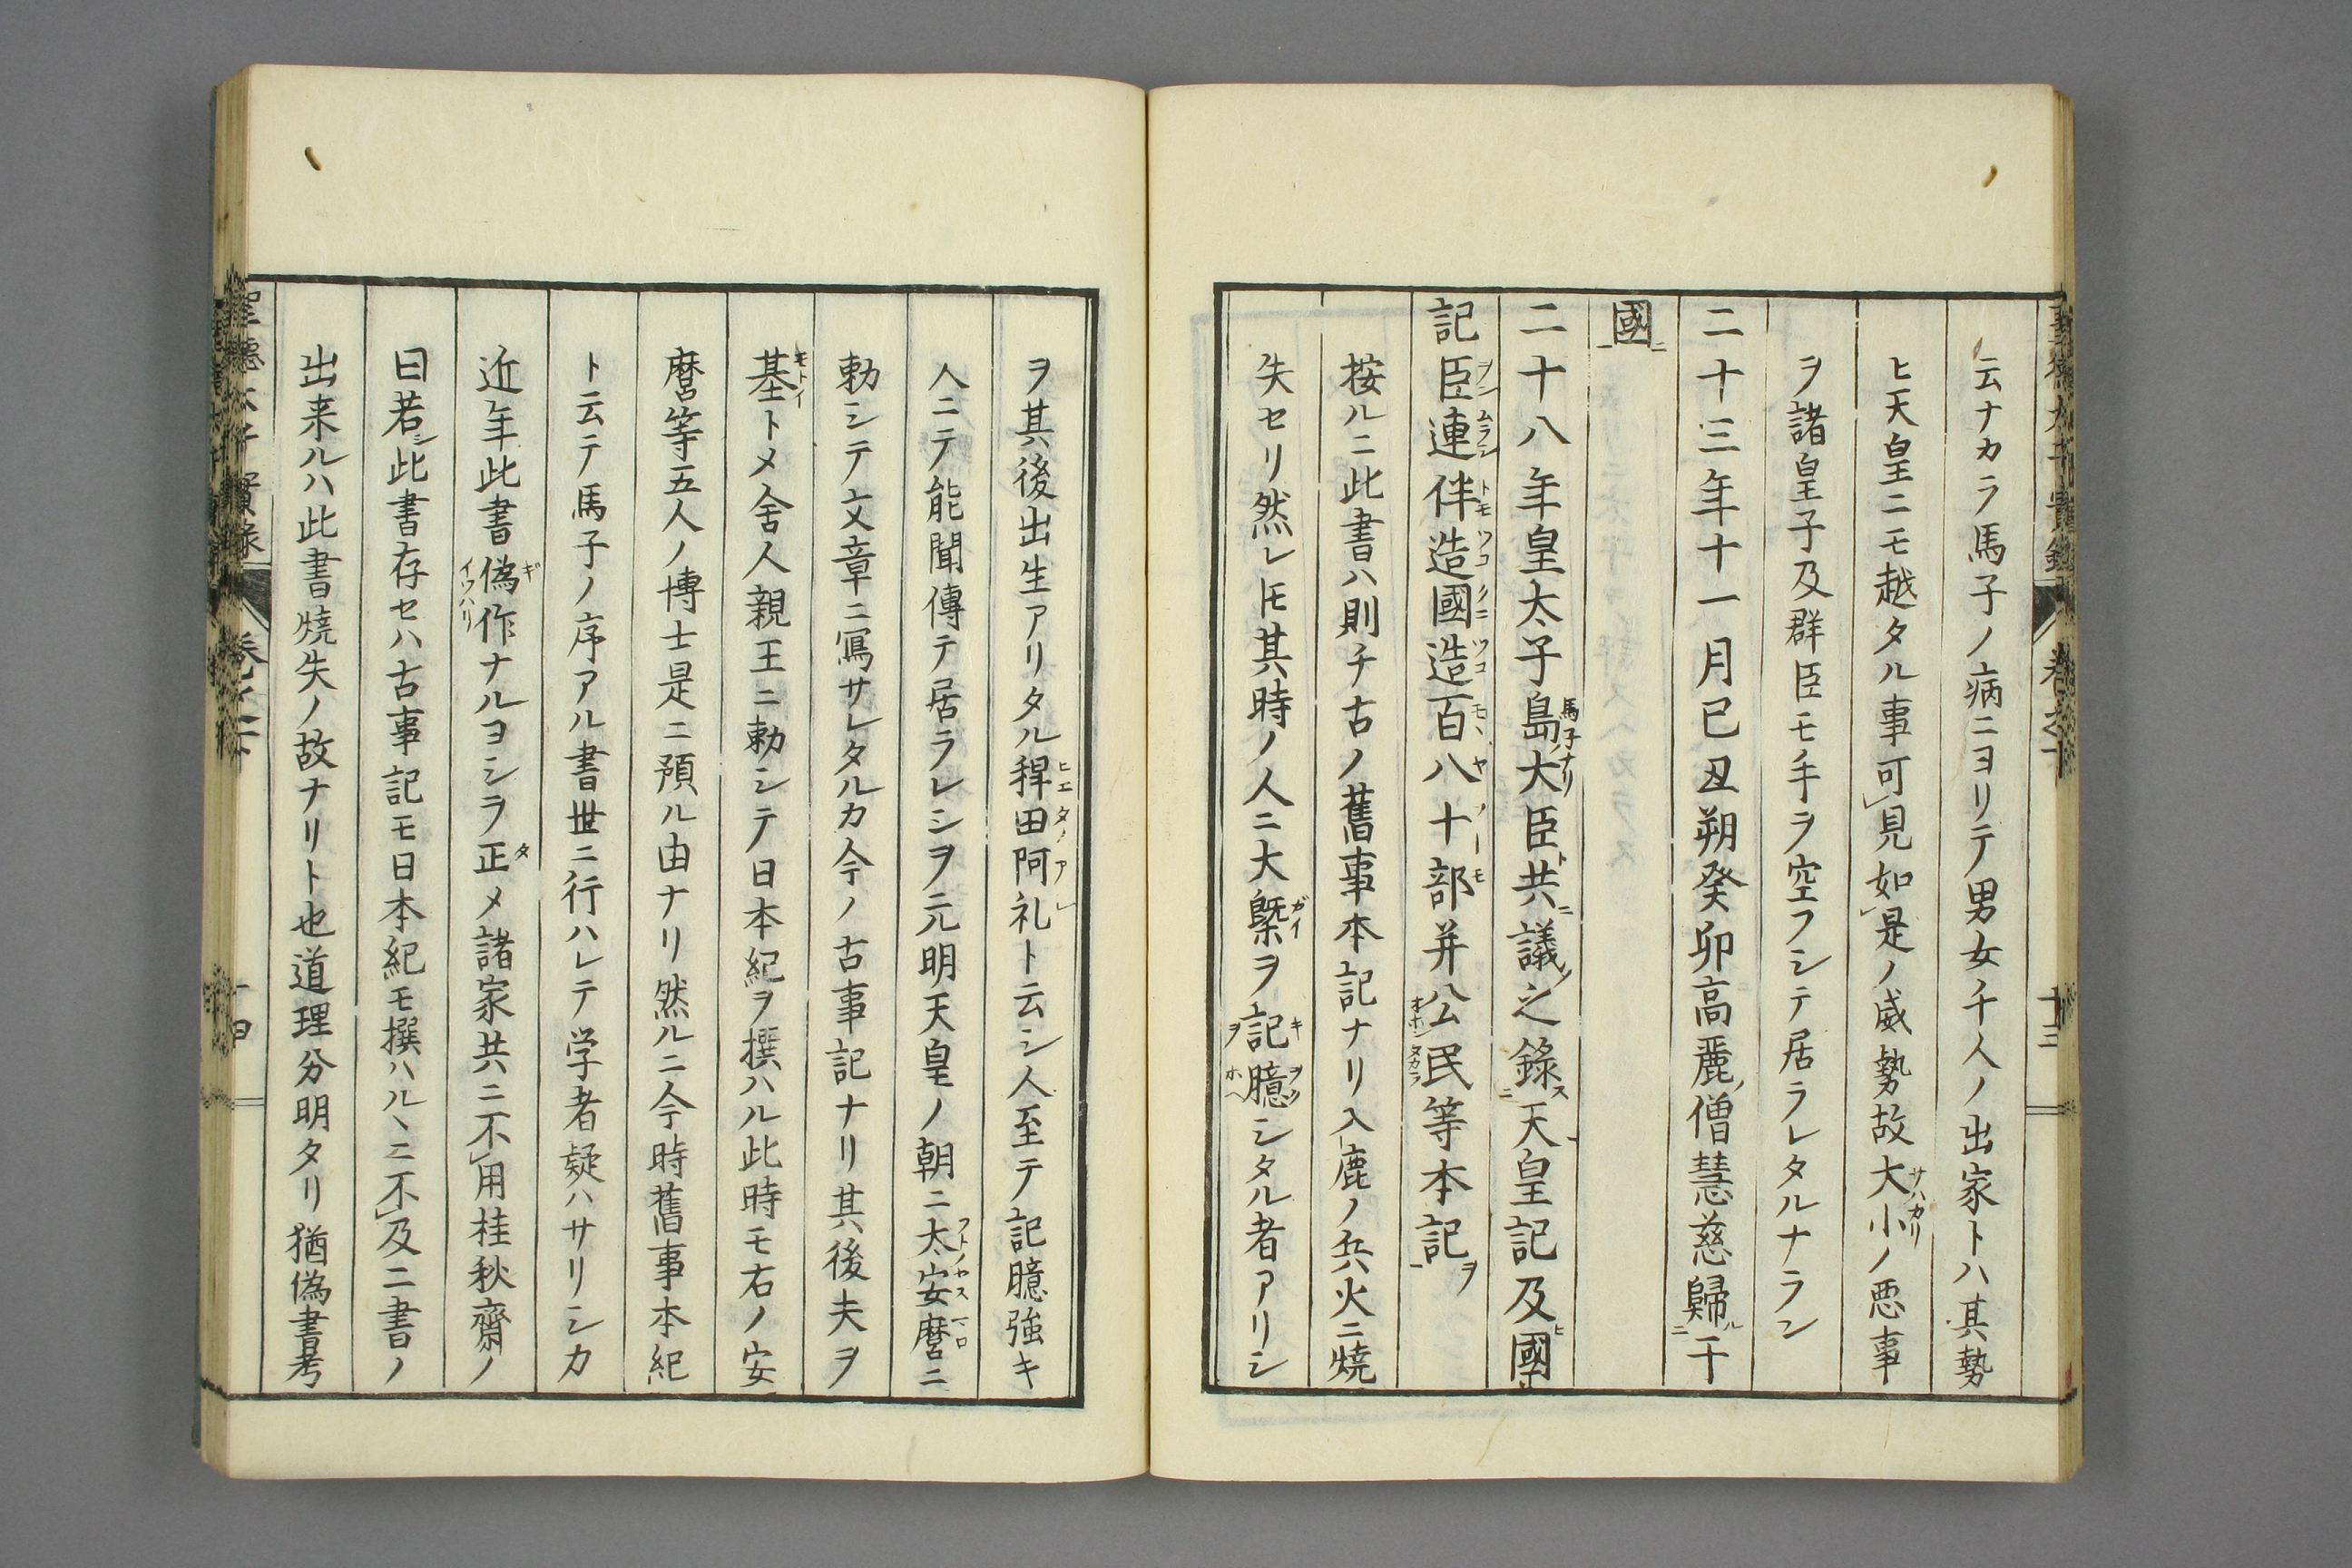 云ナカラ馬子ノ病ニヨリテ男女千人ノ出家トハ其勢
ヒ天皇ニモ越タル事可見如是ノ威勢故大小ノ悪事
ヲ諸皇子及群臣モ手ヲ空フシテ居ラレタルナラン
二十三年十一月己丑朔癸卯高麗僧慧慈歸于
國
二十八年皇太子島大臣共議之錄天皇記及國
記臣連伴造國造百八十部并公民等本記
按ルニ此書ハ則チ古ノ舊事本記ナリ入鹿ノ兵火ニ燒
失セリ然レ𪜈其時ノ人ニ大槩ヲ記臆シタル者アリシ
ヲ其後出生アリタル稗田阿礼ト云シ人至テ記臆強キ
人ニテ能聞傳テ居ラレシヲ元明天皇ノ朝ニ太安麿ニ
勅シテ文章ニ寫サレタルカ今ノ古事記ナリ其後夫ヲ
基トメ舍人親王ニ勅シテ日本紀ヲ撰ハル此時モ右ノ安
麿等五人ノ博士是ニ預ル由ナリ然ルニ今時舊事本紀
ト云テ馬子ノ序アル書世ニ行ハレテ学者疑ハサリシカ
近年此書偽作ナルヨシヲ正メ諸家共ニ不用桂秋齋ノ
曰若此書存セハ古事記モ日本紀モ撰ハルヽニ不及二書ノ
出来ルハ此書燒失ノ故ナリト也道理分明タリ猶偽書考